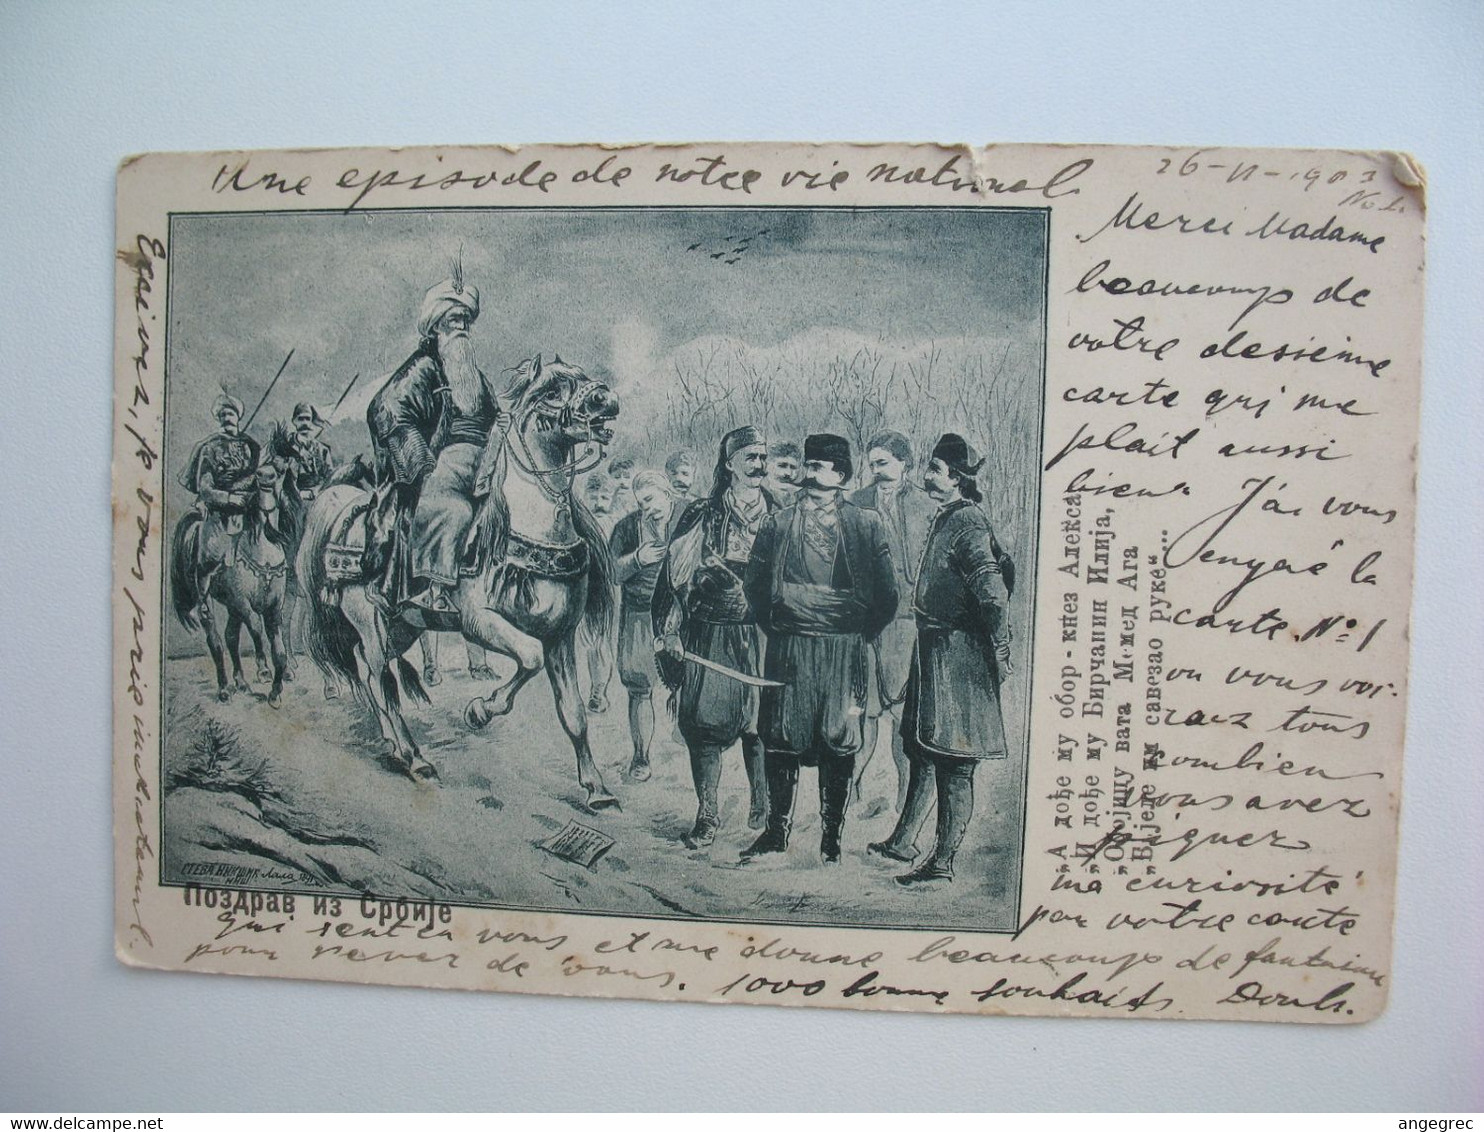 Une episode de notre vie national
26-11-1903
No 2.
Merci Madame
beaucoup de
votre desieme
carte qui me
plait aussi
bien. J'ai vous
envyerè la
carte No 1
ou vous ver-
raez tous
combien
vous avez
piquer
ma curiosité
par votre carte
qui sent en vous et me donne beaucoup de fantaisie
pour rever de vous. 1000 bonne souhaits
Ecrivez, je vous prie
„А дође му обор-кнез Алекса,
„И дође му Бирчанин Илија,
„Обојицу вата Мемед Ага
„Бијеле им савезао руке“...
СТЕВА НИКШИЋ Лала
НИШ
Поздрав из Србије
delcampe.net
angegrec